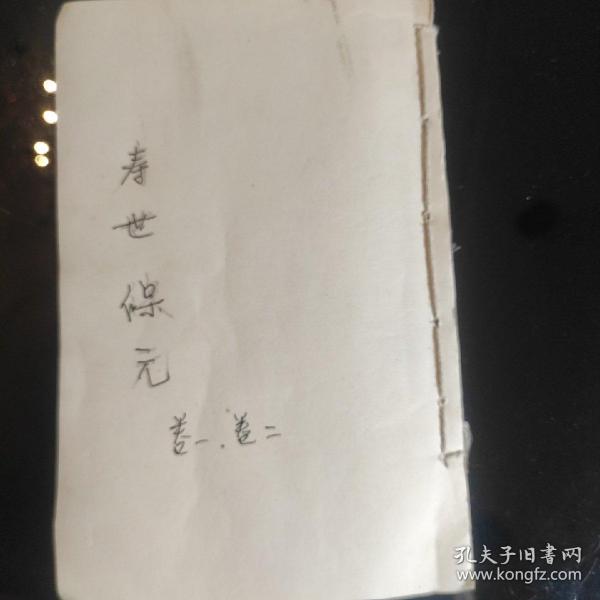 寿世保元
卷一.卷二
孔夫子旧書网
www.kongfz.com